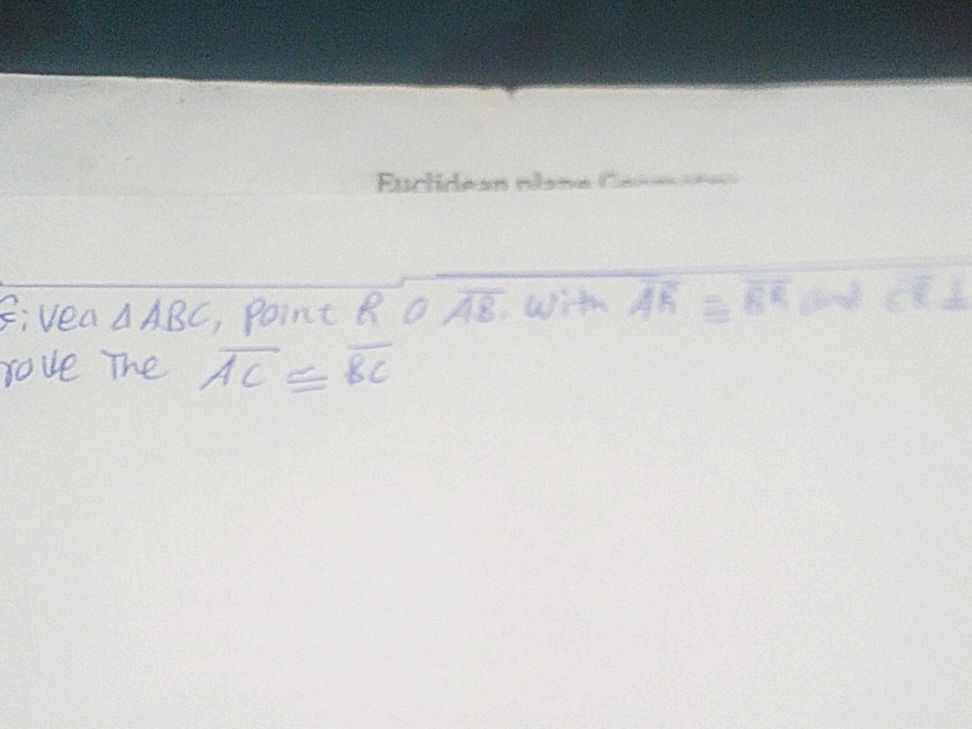 Euclidean plane
Given Δ ABC, Point R O AB. With AR ≅ BR and CR ⊥
rove The AC ≅ BC